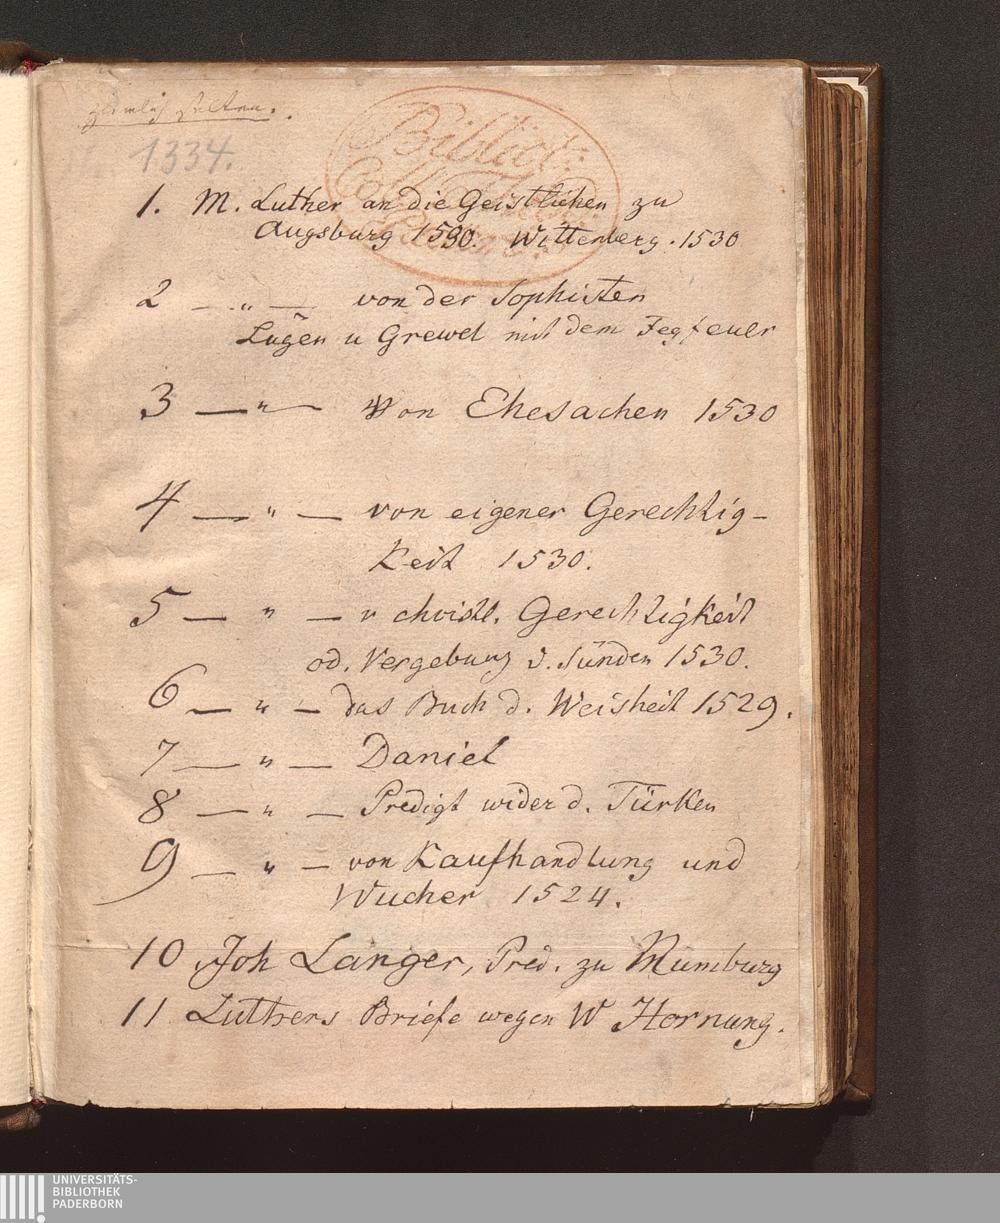 ziemlich selten.
1334.
Biblioth:
1. M. Luther an die Geistlichen zu
Augsburg 1530. Wittenberg. 1530
2 — „ — von der Sophisten
Lügen u Grewel mit dem Fegfeuer
3 — „ — Von Ehesachen 1530
4 — „ — von eigener Gerechtig-
keit 1530.
5 — „ — v christl. Gerechtigkeit
od. Vergebung d. Sünden 1530.
6 — „ — das Buch d. Weisheit 1529.
7 — „ — Daniel
8 — „ — Predigt wider d. Türken
9 — „ — von Kaufhandlung und
Wucher 1524.
10 Joh Langer, Pred. zu Numburg
11 Luthers Briefe wegen W Hornung.
UNIVERSITÄTS-
BIBLIOTHEK
PADERBORN